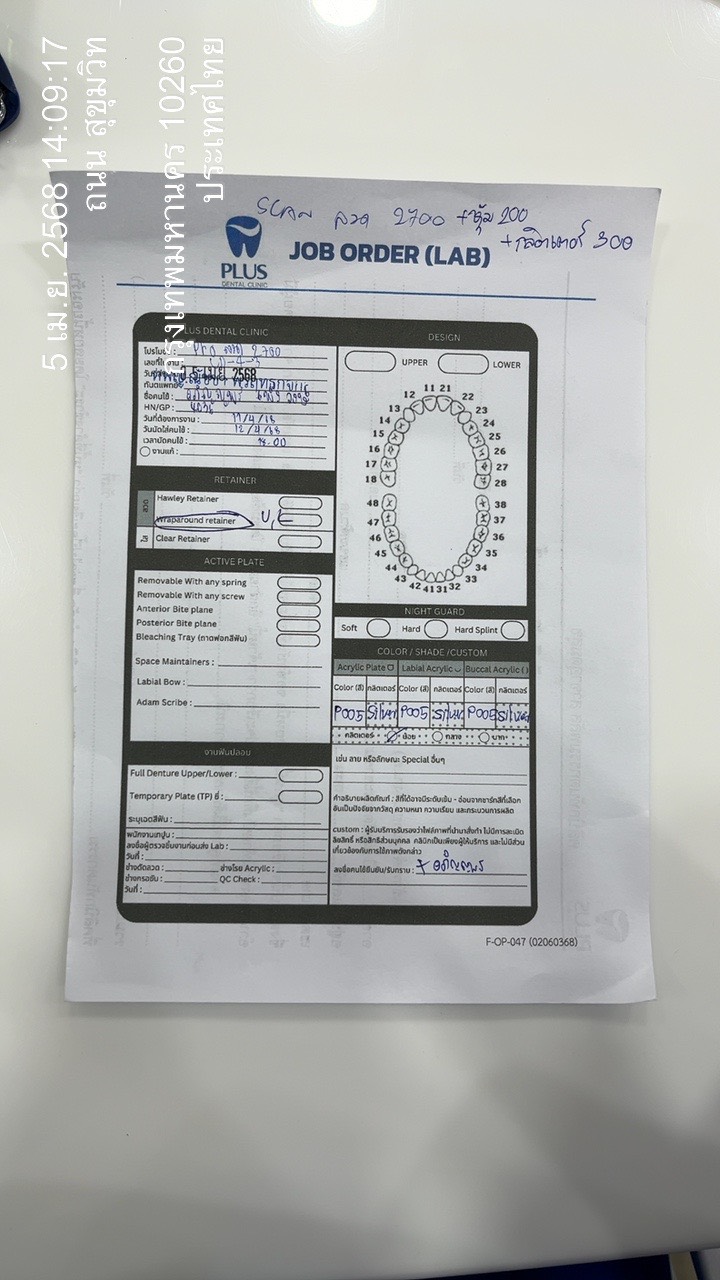 5 เม.ย. 2568 14:09:17
ถนน สุขุมวิท
กรุงเทพมหานคร 10260
ประเทศไทย
SCAN ลวด 2700 +หุ้ม 200
+กลิตเตอร์ 300
PLUS
DENTAL CLINIC
JOB ORDER (LAB)
PLUS DENTAL CLINIC
โปรโมชั่น : ลวด 2,700
เลขที่ใบงาน :
5 เม.ย. 2568
ทันตแพทย์ :
ชื่อคนไข้ :
HN/GP :
วันที่ต้องการงาน : 11/4/68
วันนัดใส่คนไข้ : 12/4/68
เวลานัดคนไข้ : 18.00
งานแก้ :
RETAINER
ลวด
Hawley Retainer
Wraparound retainer U,L
ใส
Clear Retainer
ACTIVE PLATE
Removable With any spring
Removable With any screw
Anterior Bite plane
Posterior Bite plane
Bleaching Tray (ถาดฟอกสีฟัน)
Space Maintainers :
Labial Bow :
Adam Scribe :
งานฟันปลอม
Full Denture Upper/Lower :
Temporary Plate (TP) ซี่ :
ระบุเฉดสีฟัน :
พนักงานเทปูน :
ลงชื่อผู้ตรวจชิ้นงานก่อนส่ง Lab :
วันที่ :
ช่างดัดลวด : ช่างโรย Acrylic :
ช่างกรอขัน : QC Check :
วันที่ :
DESIGN
UPPER LOWER
11 21
12 22
13 23
14 24
15 25
16 26
17 27
18 28
48 38
47 37
46 36
45 35
44 34
43 33
42 41 31 32
NIGHT GUARD
Soft Hard Hard Splint
COLOR / SHADE /CUSTOM
Acrylic Plate Labial Acrylic Buccal Acrylic ( )
Color (สี) กลิตเตอร์ Color (สี) กลิตเตอร์ Color (สี) กลิตเตอร์
P005 Silver P005 Silver P005 Silver
กลิตเตอร์ น้อย กลาง มาก
เช่น ลาย หรือลักษณะ Special อื่นๆ
คำอธิบายผลิตภัณฑ์ : สีที่ได้อาจมีระดับเข้ม - อ่อนจากชาร์ทสีที่เลือก
อันเป็นปัจจัยจากวัสดุ ความหนา ความเรียบ และกระบวนการผลิต
custom : ผู้รับบริการรับรองว่าไฟล์ภาพที่นำมาสั่งทำ ไม่มีการละเมิด
ลิขสิทธิ์ หรือสิทธิส่วนบุคคล คลินิกเป็นเพียงผู้ให้บริการ และไม่มีส่วน
เกี่ยวข้องกับการใช้ภาพดังกล่าว
ลงชื่อคนไข้ยืนยัน/รับทราบ :
F-OP-047 (02060368)